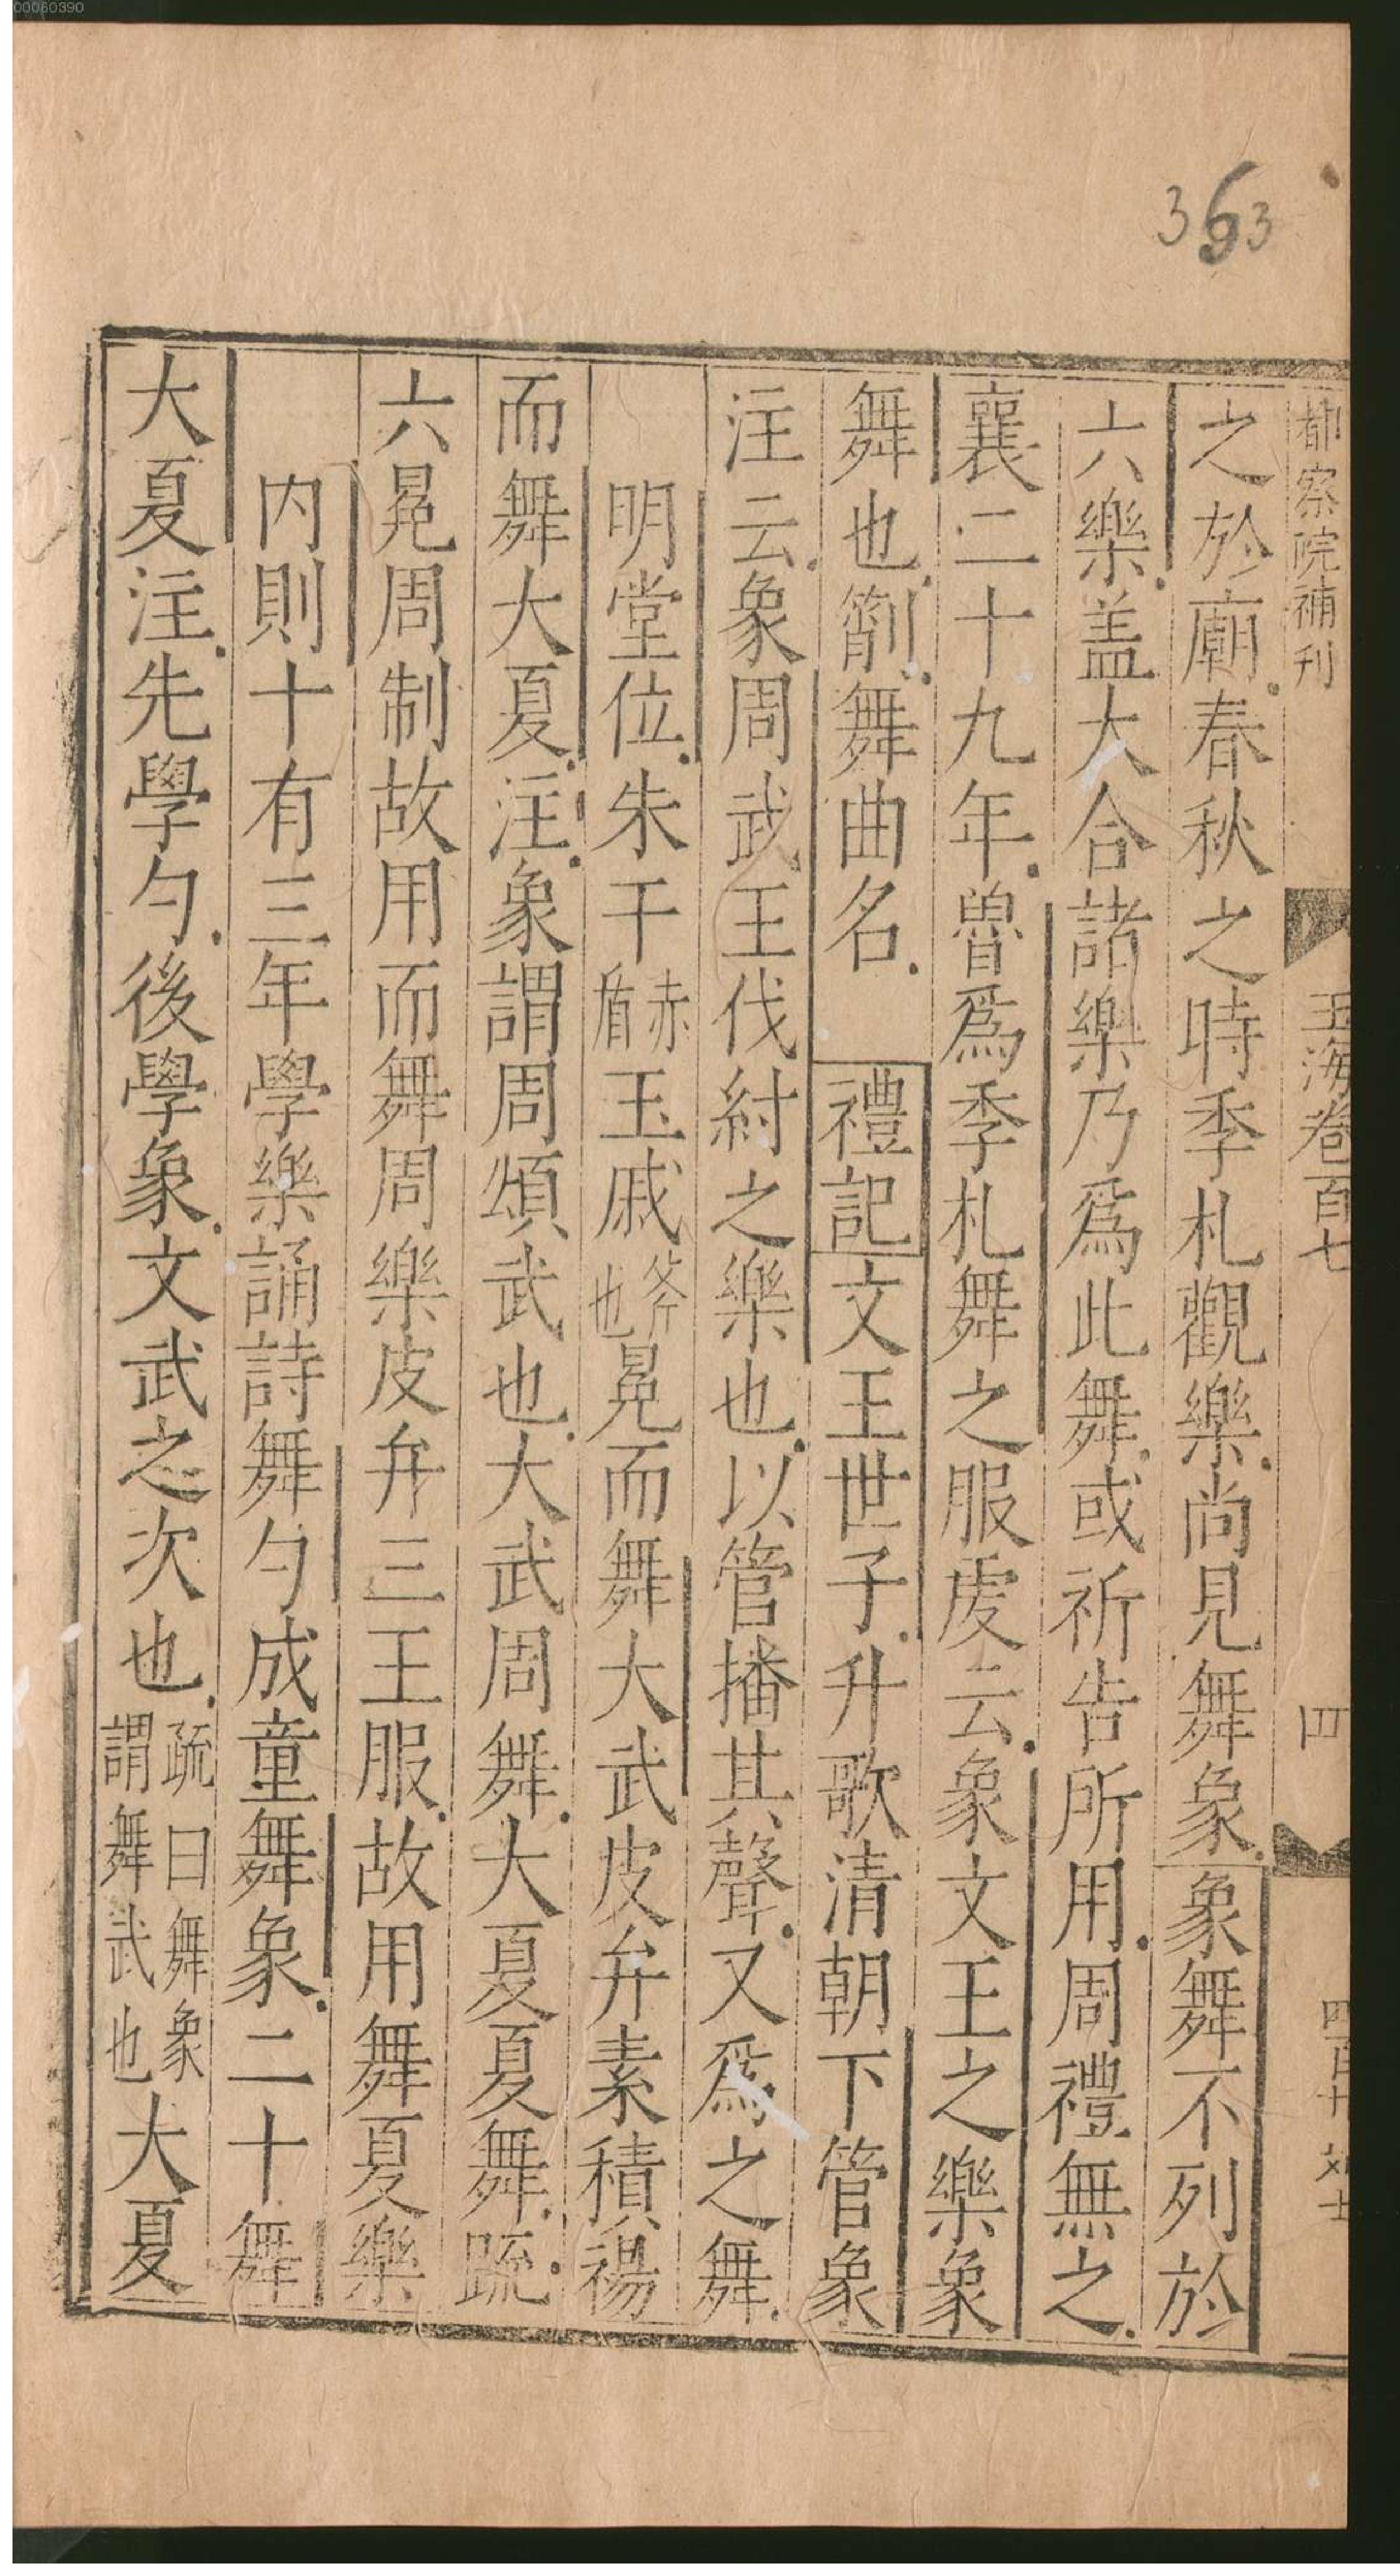 00060390
363
都察院補刊 玉海卷百七 四
之於廟春秋之時季札觀樂尚見舞象象舞不列於
六樂盖大合諸樂乃爲此舞或祈告所用周禮無之
襄二十九年魯爲季札舞之服虔云象文王之樂象
舞也箾舞曲名禮記文王世子升歌清朝下管象
注云象周武王伐紂之樂也以管播其聲又爲之舞
明堂位朱干赤盾玉戚斧也冕而舞大武皮弁素積裼
而舞大夏注象謂周頌武也大武周舞大夏夏舞䟽
六冕周制故用而舞周樂皮弁三王服故用舞夏樂
内則十有三年學樂誦詩舞勺成童舞象二十舞
大夏注先學勺後學象文武之次也疏曰舞象謂舞武也大夏